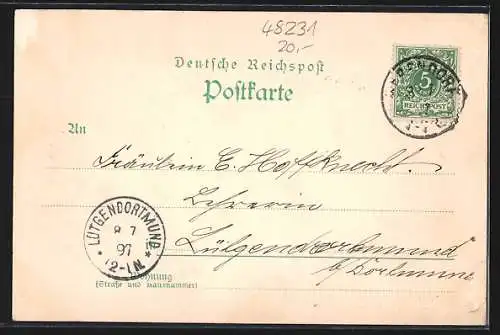 48231
20,-
Deutsche Reichspost
Postkarte
5
REICHSPOST
An
Fräulein E. Hoffknecht.
Lehrerin
Lütgendortmund
b/Dortmund
LÜTGENDORTMUND
8 7
97
12-1N.
Wohnung
(Straße und Hausnummer)